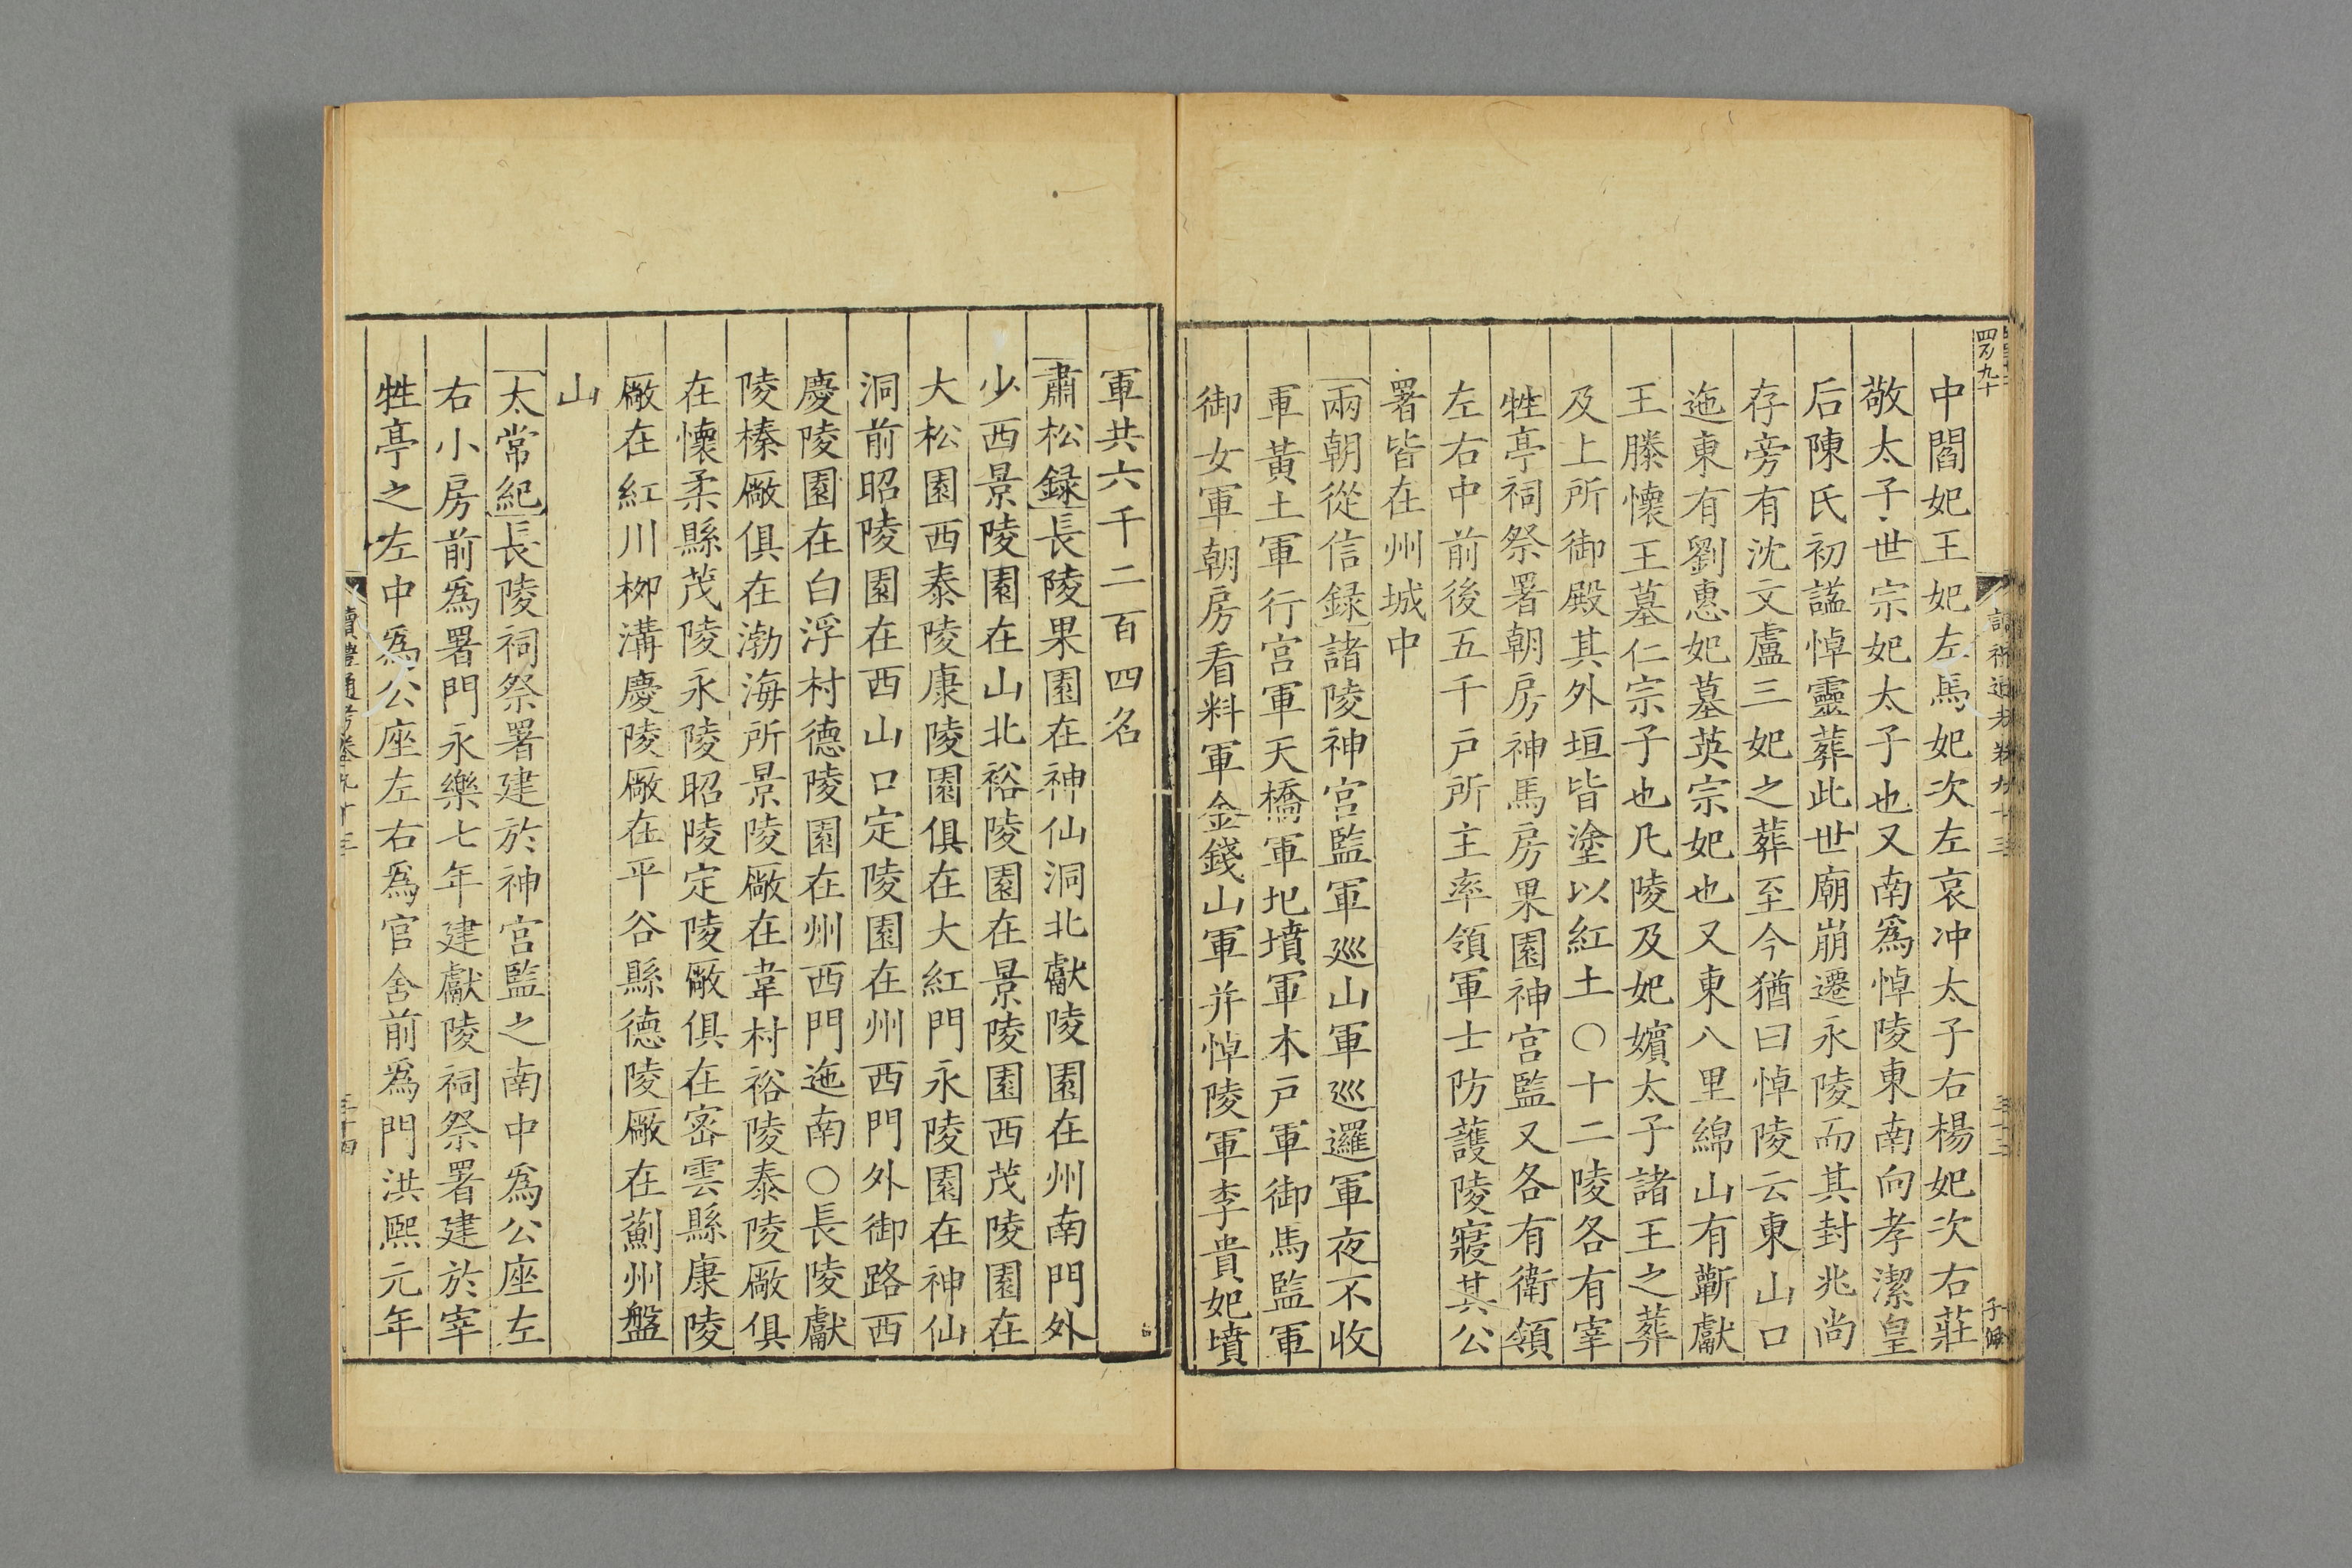 中閻妃王妃左馬妃次左哀冲太子右楊妃次右莊
敬太子世宗妃太子也又南爲悼陵東南向孝潔皇
后陳氏初諡悼靈葬此世廟崩遷永陵而其封兆尚
存旁有沈文盧三妃之葬至今猶曰悼陵云東山口
迤東有劉惠妃墓英宗妃也又東八里綿山有蘄獻
王滕懷王墓仁宗子也凡陵及妃嬪太子諸王之葬
及上所御殿其外垣皆塗以紅土〇十二陵各有宰
牲亭祠祭署朝房神馬房果園神宮監又各有衛領
左右中前後五千戶所主率領軍士防護陵寢其公
署皆在州城中
兩朝從信録諸陵神宮監軍巡山軍巡邏軍夜不收
軍黃土軍行宮軍天橋軍圯墳軍木戶軍御馬監軍
御女軍朝房看料軍金錢山軍并悼陵軍李貴妃墳
軍共六千二百四名
肅松録長陵果園在神仙洞北獻陵園在州南門外
少西景陵園在山北裕陵園在景陵園西茂陵園在
大松園西泰陵康陵園俱在大紅門永陵園在神仙
洞前昭陵園在西山口定陵園在州西門外御路西
慶陵園在白浮村德陵園在州西門迤南〇長陵獻
陵榛廠俱在渤海所景陵廠在韋村裕陵泰陵廠俱
在懷柔縣茂陵永陵昭陵定陵廠俱在密雲縣康陵
廠在紅川栁溝慶陵廠在平谷縣德陵廠在薊州盤
山
太常紀長陵祠祭署建於神宮監之南中爲公座左
右小房前爲署門永樂七年建獻陵祠祭署建於宰
牲亭之左中爲公座左右爲官舍前爲門洪熙元年
讀禮通考卷九十三